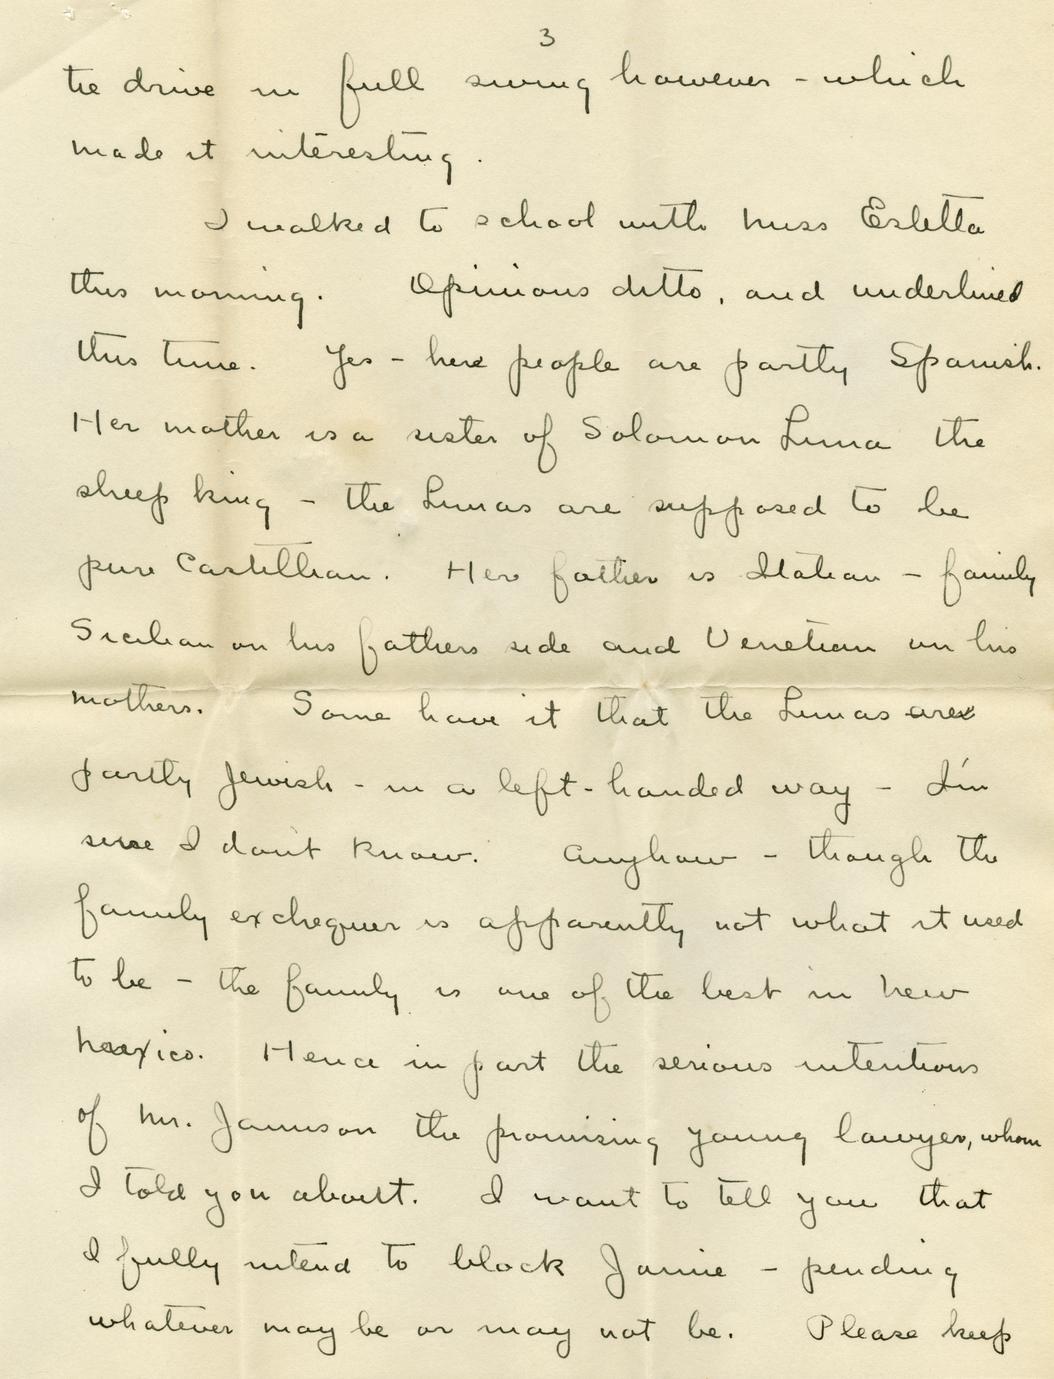 3
the drive in full swing however - which
made it interesting.
I walked to school with Miss Estella
this morning. Opinions ditto, and underlined
this time. Yes - her people are partly Spanish.
Her mother is a sister of Solomon Luna the
sheep king - the Lunas are supposed to be
pure Castillian. Her father is Italian - family
Sicilian on his fathers side and Venetian on his
mothers. Some have it that the Lunas are
partly Jewish - in a left-handed way - I'm
sure I don't know. Anyhow - though the
family exchequer is apparently not what it used
to be - the family is one of the best in New
Mexico. Hence in part the serious intentions
of Mr. Jamison the promising young lawyer, whom
I told you about. I want to tell you that
I fully intend to block Jamie - pending
whatever may be or may not be. Please keep